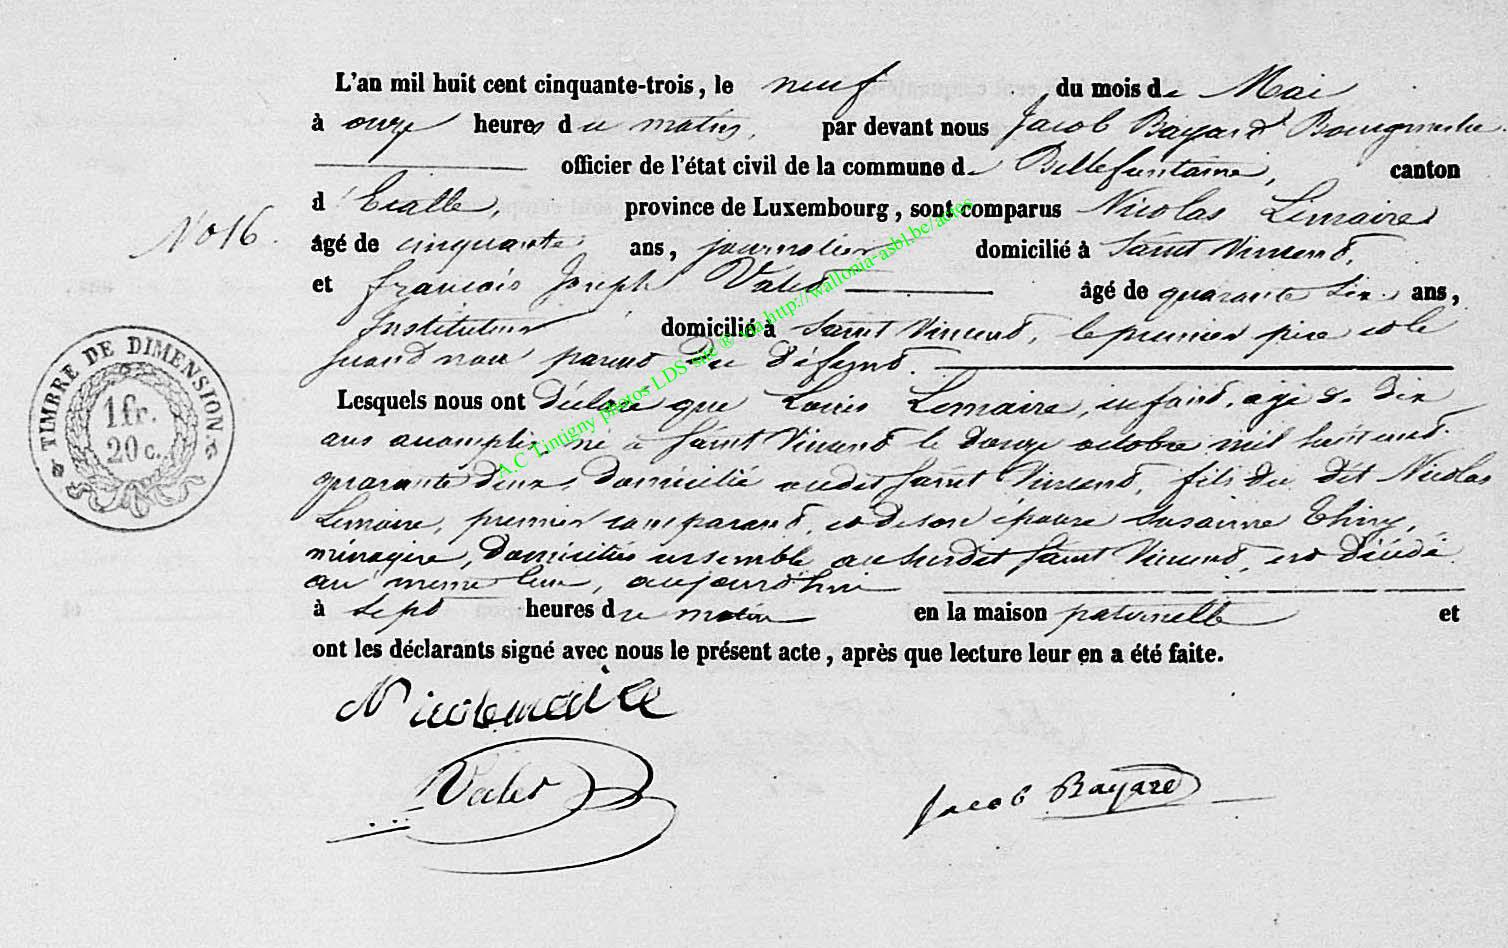 L'an mil huit cent cinquante-trois, le neuf du mois de Mai
à onze heures du matin, par devant nous Jacob Bayard Bourgmestre
officier de l'état civil de la commune de Bellefontaine, canton
d'Etalle, province de Luxembourg, sont comparus Nicolas Lemaire
No 16. âgé de cinquante ans, journalier domicilié à Saint Vincent,
et françois Joseph Valet âgé de quarante six ans,
Instituteur domicilié à Saint Vincent, le premier père et le
second non parent du défunt.
TIMBRE DE DIMENSION.
1 fr.
20 c.
Lesquels nous ont déclaré que Louis Lemaire, enfant, agé de dix
ans accomplis, né à Saint Vincent le douze octobre mil huit cent
quarante deux, domicilié audit Saint Vincent, fils du dit Nicolas
Lemaire, premier comparant, et de son épouse Susanne Thiry,
ménagère, domiciliés ensemble au susdit Saint Vincent, est décédé
au même lieu, aujourd'hui
à sept heures du matin en la maison paternelle et
ont les déclarants signé avec nous le présent acte, après que lecture leur en a été faite.
Valet
Jacob Bayard
A.C Lintigny photos LDS-sac ® via http://wallonia-asbl.be/actes